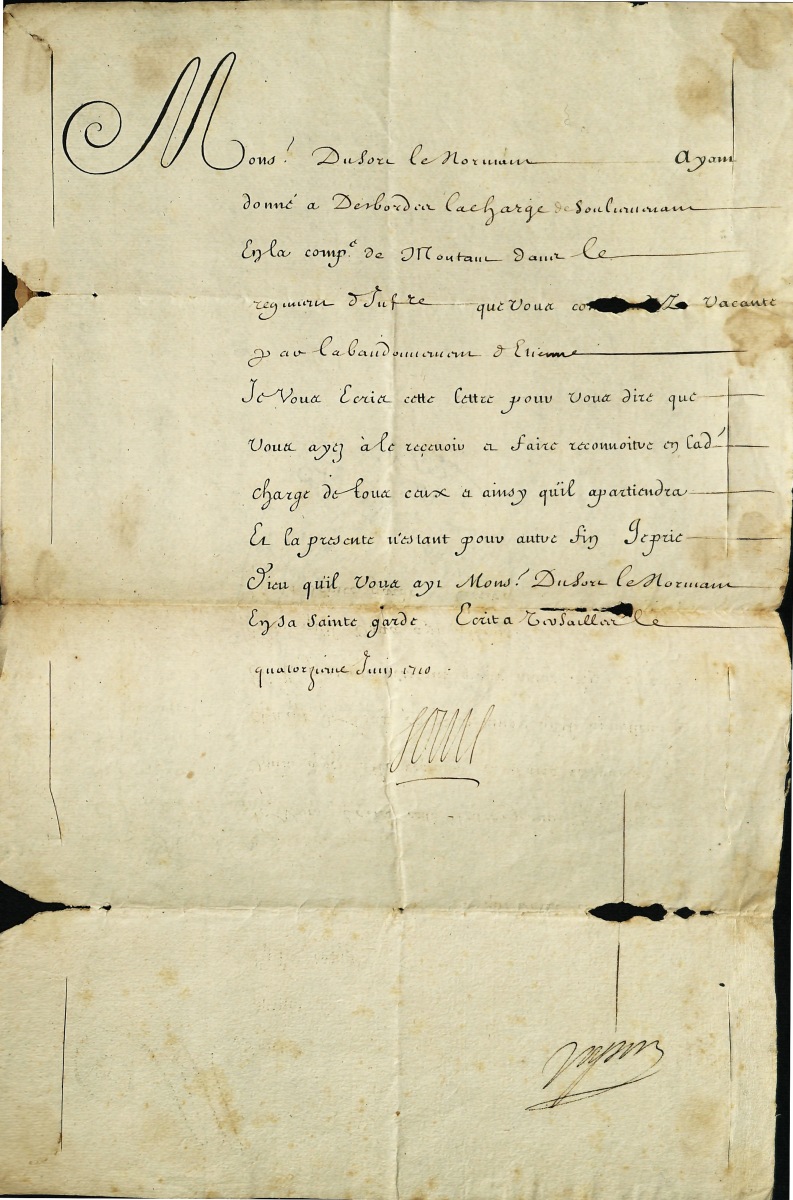 Mons.r Dufort le Normant Ayant
donné a Desbordes la charge de Soulieutenant
En la comp.e de Moutant dans le
regiment d'Inf.re que vous com vacante
par labandonnement d'Etienne
Je Vous Ecris cette lettre pour vous dire que
vous ayez à le recevoir et faire reconnoitre en lad.
charge de tous ceux et ainsy qu'il apartiendra
Et la presente n'estant pour autre fin Je prie
Dieu qu'il vous ayt Mons.r Dufort le Normant
En sa sainte garde. Ecrit a Versailles le
quatorzieme Juin 1710.
Louis
Voysin